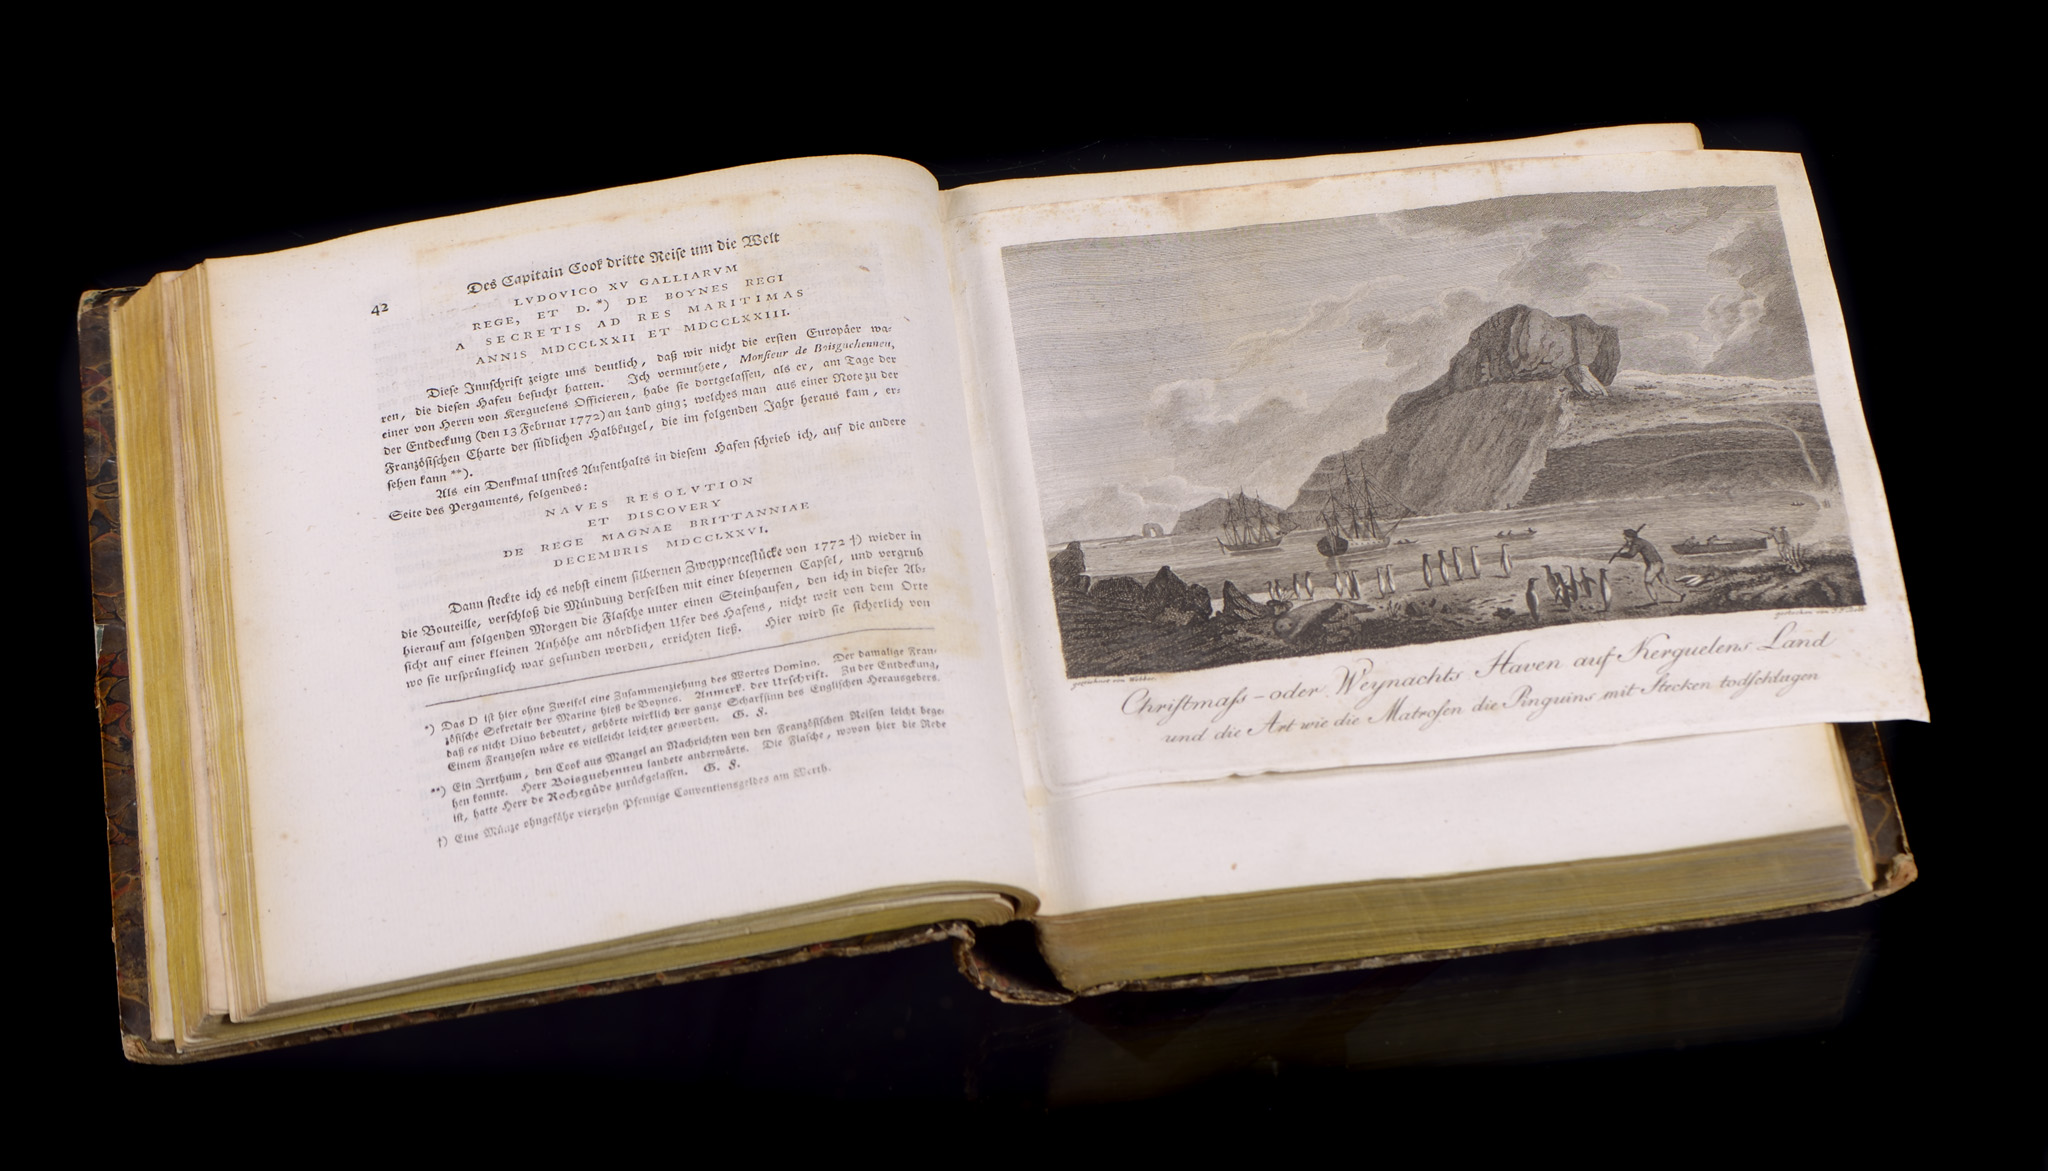 42
Des Capitain Cook dritte Reise um die Welt
LVDOVICO XV GALLIARVM
REGE, ET D. *) DE BOYNES REGI
A SECRETIS AD RES MARITIMAS
ANNIS MDCCLXXII ET MDCCLXXIII.
Diese Innschrift zeigte uns deutlich, daß wir nicht die ersten Europäer wa-
ren, die diesen Hafen besucht hatten. Ich vermuthete, Monsieur de Boisguehenneu,
einer von Herrn von Kerguelens Officieren, habe sie dortgelassen, als er, am Tage der
der Entdeckung (den 13 Februar 1772) an Land ging; welches man aus einer Note zu der
Französischen Charte der südlichen Halbkugel, die im folgenden Jahr heraus kam, er-
sehen kann **).
Als ein Denkmal unsres Aufenthalts in diesem Hafen schrieb ich, auf die andere
Seite des Pergaments, folgendes:
NAVES RESOLVTION
ET DISCOVERY
DE REGE MAGNAE BRITTANNIAE
DECEMBRIS MDCCLXXVI.
Dann steckte ich es nebst einem silbernen Zweypencestücke von 1772 †) wieder in
die Bouteille, verschloß die Mündung derselben mit einer bleyernen Capsel, und vergrub
hierauf am folgenden Morgen die Flasche unter einen Steinhaufen, den ich in dieser Ab-
sicht auf einer kleinen Anhöhe am nördlichen Ufer des Hafens, nicht weit von dem Orte
wo sie ursprünglich war gefunden worden, errichten ließ. Hier wird sie sicherlich von
*) Das D ist hier ohne Zweifel eine Zusammenziehung des Wortes Domino. Der damalige Fran-
zösische Sekretair der Marine hieß de Boynes. Anmerk. der Urschrift. Zu der Entdeckung,
daß es nicht Divo bedeutet, gehörte wirklich der ganze Scharfsinn des Englischen Herausgebers.
Einem Franzosen wäre es vielleicht leichter geworden. G. F.
**) Ein Irrthum, den Cook aus Mangel an Nachrichten von den Französischen Reisen leicht bege-
hen konnte. Herr Boisguehenneu landete anderwärts. Die Flasche, wovon hier die Rede
ist, hatte Herr de Rochegüde zurückgelassen. G. F.
†) Eine Münze ohngefähr vierzehn Pfennige Conventionsgeldes am Werth.
gezeichnet von Webber
Christmass-oder Weynachts Haven auf Kerguelens Land
und die Art wie die Matrosen die Pinguins mit Stecken todschlagen